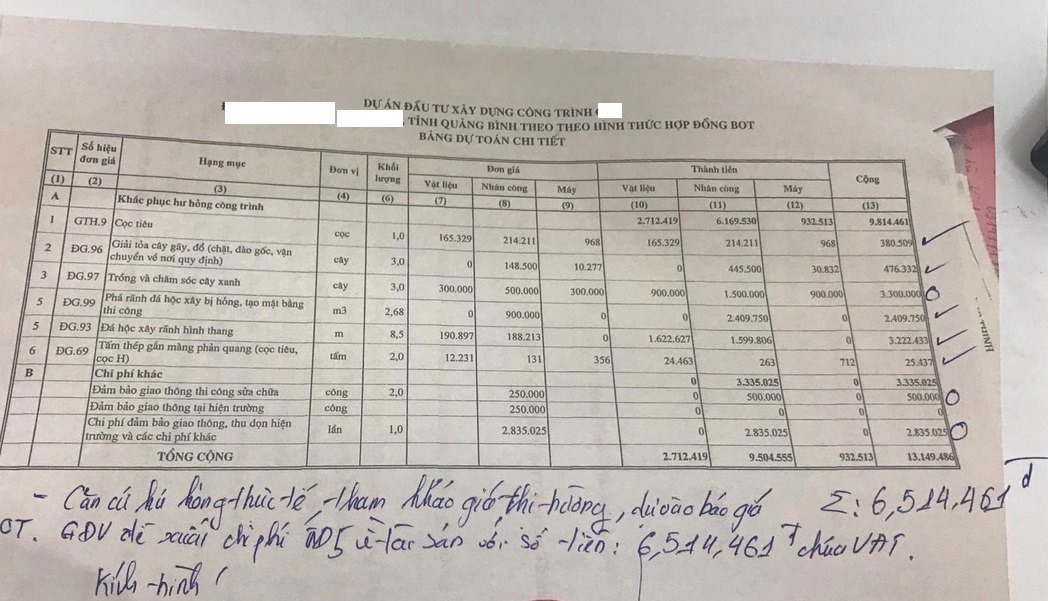 DỰ ÁN ĐẦU TƯ XÂY DỰNG CÔNG TRÌNH
, TỈNH QUẢNG BÌNH THEO THEO HÌNH THỨC HỢP ĐỒNG BOT
BẢNG DỰ TOÁN CHI TIẾT
STT Số hiệu đơn giá Hạng mục Đơn vị Khối lượng Đơn giá Thành tiền Cộng
Vật liệu Nhân công Máy Vật liệu Nhân công Máy
(1) (2) (3) (4) (6) (7) (8) (9) (10) (11) (12) (13)
A Khắc phục hư hỏng công trình 2.712.419 6.169.530 932.513 9.814.461
1 GTH.9 Cọc tiêu cọc 1,0 165.329 214.211 968 165.329 214.211 968 380.509
2 ĐG.96 Giải tỏa cây gãy, đổ (chặt, đào gốc, vận chuyển về nơi quy định) cây 3,0 0 148.500 10.277 0 445.500 30.832 476.332
3 ĐG.97 Trồng và chăm sóc cây xanh cây 3,0 300.000 500.000 300.000 900.000 1.500.000 900.000 3.300.000
5 ĐG.99 Phá rãnh đá hộc xây bị hỏng, tạo mặt bằng thi công m3 2,68 0 900.000 0 0 2.409.750 0 2.409.750
5 ĐG.93 Đá hộc xây rãnh hình thang m 8,5 190.897 188.213 0 1.622.627 1.599.806 0 3.222.433
6 ĐG.69 Tấm thép gắn màng phản quang (cọc tiêu, cọc H) tấm 2,0 12.231 131 356 24.463 263 712 25.437
B Chi phí khác 0 3.335.025 0 3.335.025
Đảm bảo giao thông thi công sửa chữa công 2,0 250.000 0 500.000 0 500.000
Đảm bảo giao thông tại hiện trường công 250.000 0 0 0 0
Chi phí đảm bảo giao thông, thu dọn hiện trường và các chi phí khác lần 1,0 2.835.025 0 2.835.025 0 2.835.025
TỔNG CỘNG 2.712.419 9.504.555 932.513 13.149.486
- Căn cứ hư hỏng thực tế, tham khảo giá thị trường, dựa vào báo giá Σ: 6,514,461 đ
CT. GĐV đề xuất chi phí về tài sản với số tiền: 6,514,461 đ chưa VAT.
Kính trình!